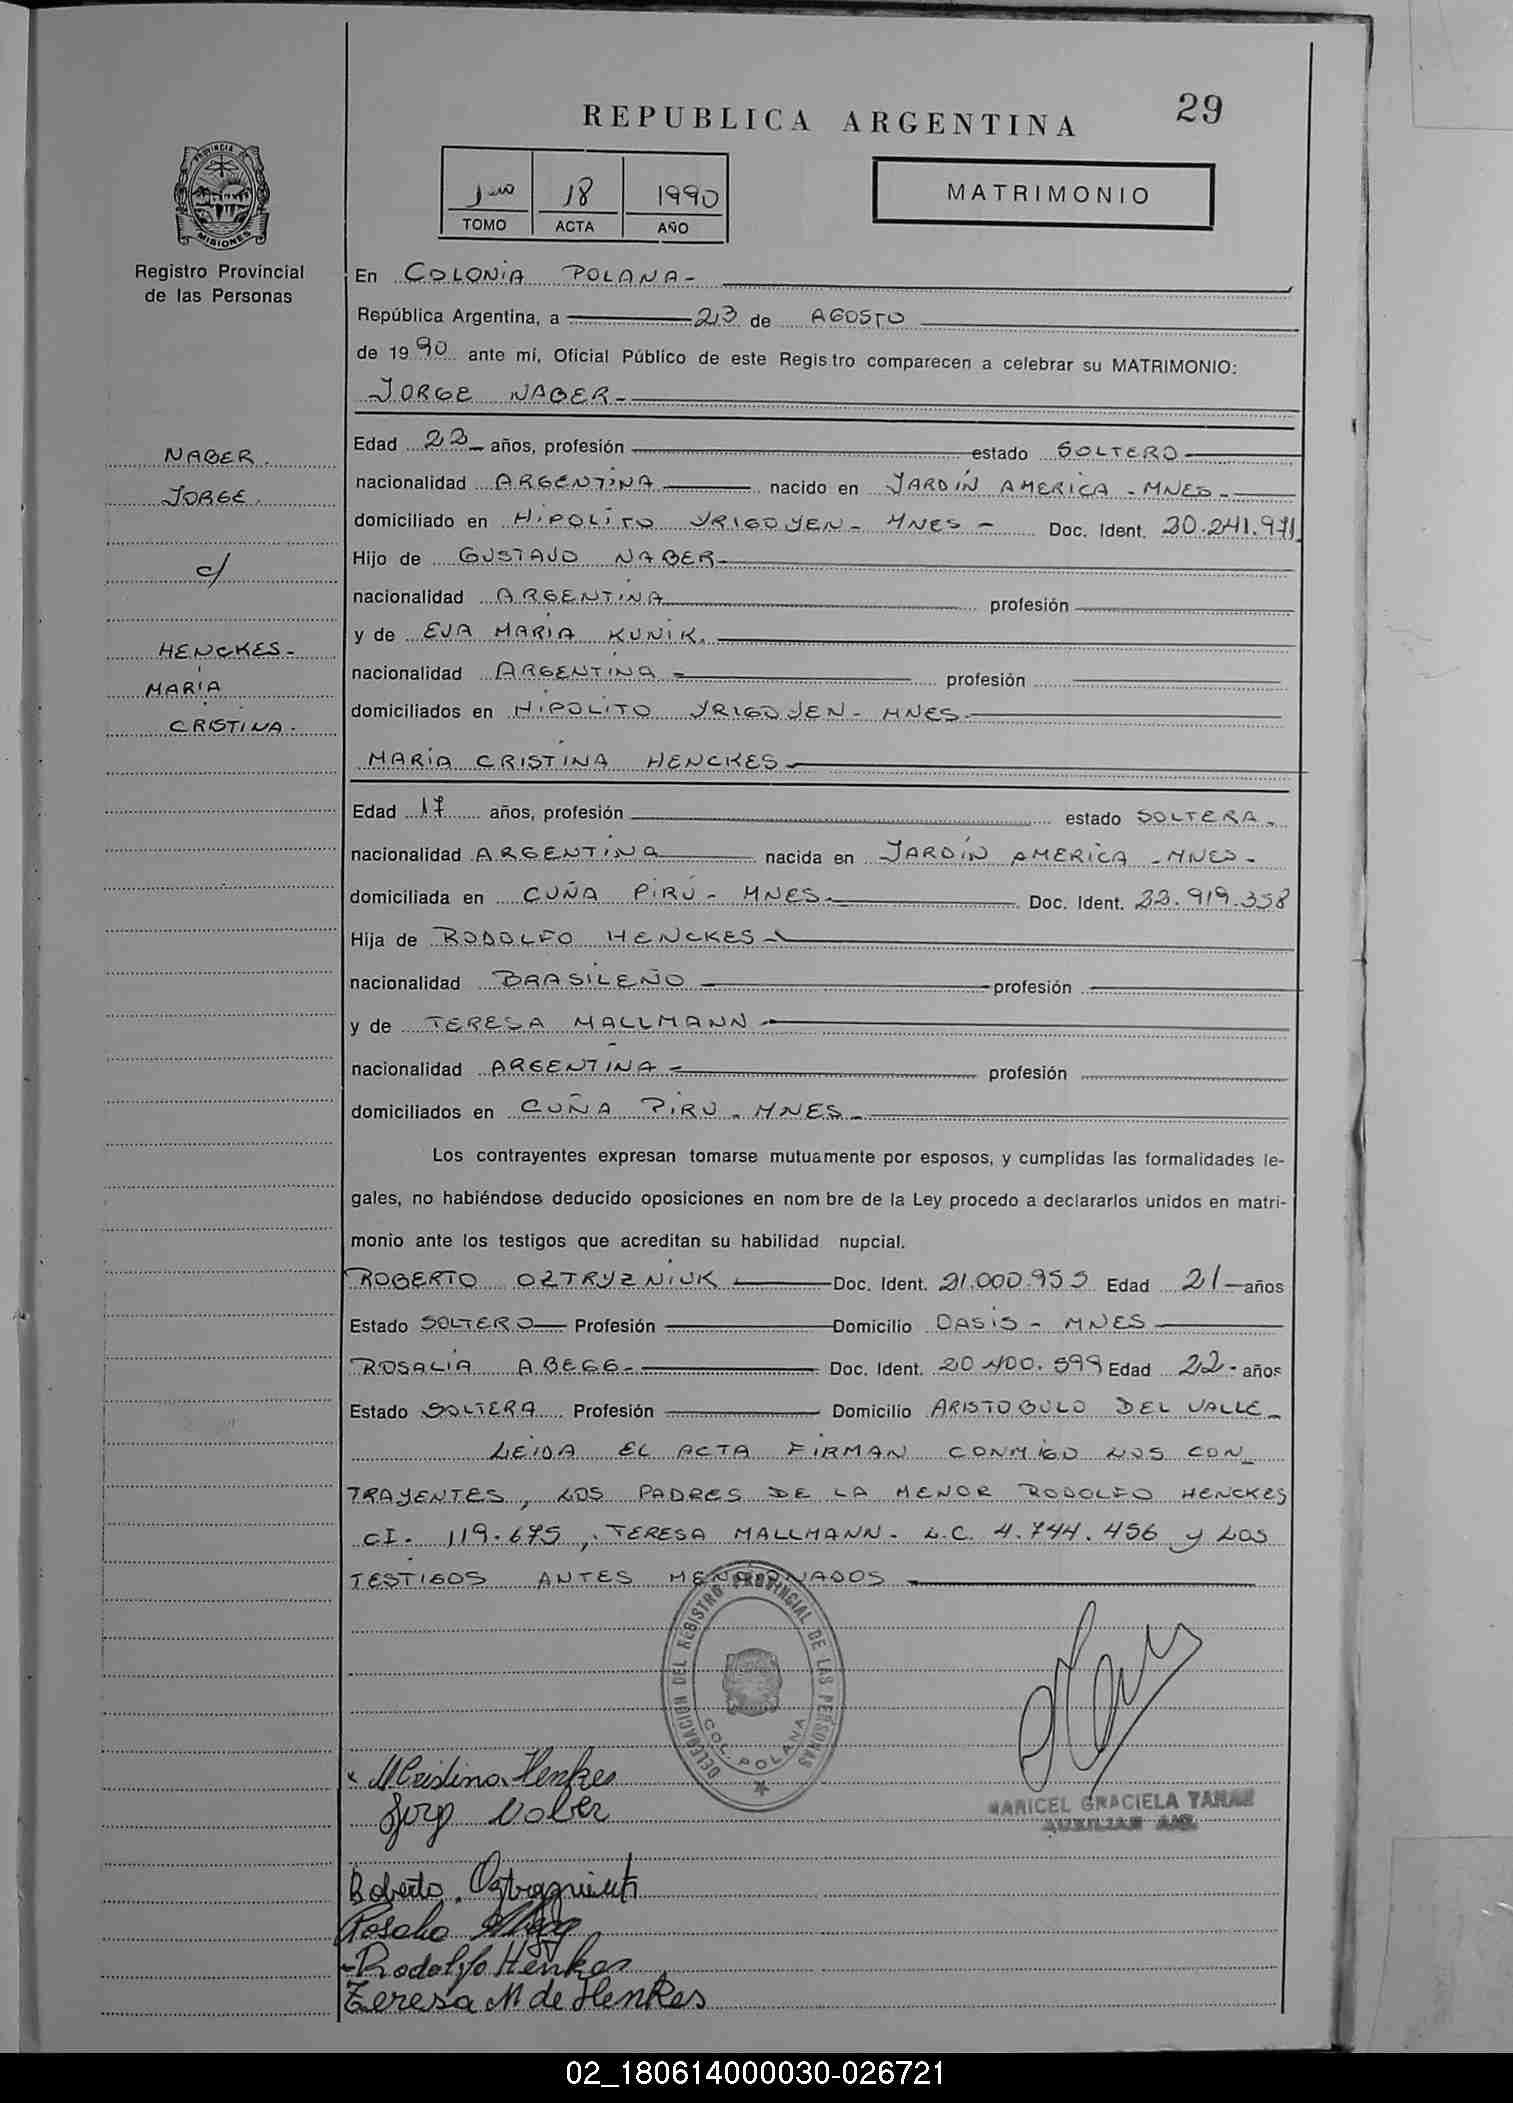 29
REPUBLICA ARGENTINA
PROVINCIA DE
MISIONES
Registro Provincial
de las Personas
1ero 18 1990
TOMO ACTA AÑO
MATRIMONIO
En COLONIA POLANA-
República Argentina, a 23 de AGOSTO
de 1990 ante mí, Oficial Público de este Registro comparecen a celebrar su MATRIMONIO:
JORGE NABER-
NABER.
JORGE.
c/
HENCKES-
MARÍA
CRISTINA.
Edad 22 años, profesión estado SOLTERO
nacionalidad ARGENTINA nacido en JARDÍN AMERICA - MNES-
domiciliado en HIPOLITO YRIGOYEN- MNES - Doc. Ident. 20.241.971
Hijo de GUSTAVO NABER-
nacionalidad ARGENTINA profesión
y de EVA MARÍA KUNIK.
nacionalidad ARGENTINA - profesión
domiciliados en HIPOLITO YRIGOYEN- MNES-
MARÍA CRISTINA HENCKES-
Edad 17 años, profesión estado SOLTERA-
nacionalidad ARGENTINA nacida en JARDÍN AMERICA -MNES-
domiciliada en CUÑA PIRÚ- MNES- Doc. Ident. 22.919.358
Hija de RODOLFO HENCKES-
nacionalidad BRASILEÑO profesión
y de TERESA MALLMANN-
nacionalidad ARGENTINA - profesión
domiciliados en CUÑA PIRÚ - MNES-
Los contrayentes expresan tomarse mutuamente por esposos, y cumplidas las formalidades le-
gales, no habiéndose deducido oposiciones en nom bre de la Ley procedo a declararlos unidos en matri-
monio ante los testigos que acreditan su habilidad nupcial.
ROBERTO OZTRYZNIUK Doc. Ident. 21.000.953 Edad 21 años
Estado SOLTERO Profesión Domicilio OASIS - MNES
ROSALÍA ABEGG- Doc. Ident. 20.400.599 Edad 22- años
Estado SOLTERA Profesión Domicilio ARISTOBULO DEL VALLE-
LEIDA EL ACTA FIRMAN CONMIGO LOS CON_
TRAYENTES, LOS PADRES DE LA MENOR RODOLFO HENCKES
CI. 119.675, TERESA MALLMANN- L.C. 4.744.456 y LOS
TESTIGOS ANTES MENCIONADOS
DELEGACION DEL REGISTRO PROVINCIAL DE LAS PERSONAS
COL. POLANA
M Cristina Henkes
Jorg Naber
MARICEL GRACIELA
AUXILIAR
Roberto Oztryzniuk
Rosalia Abegg
Rodolfo Henkes
Teresa M de Henkes
02_180614000030-026721